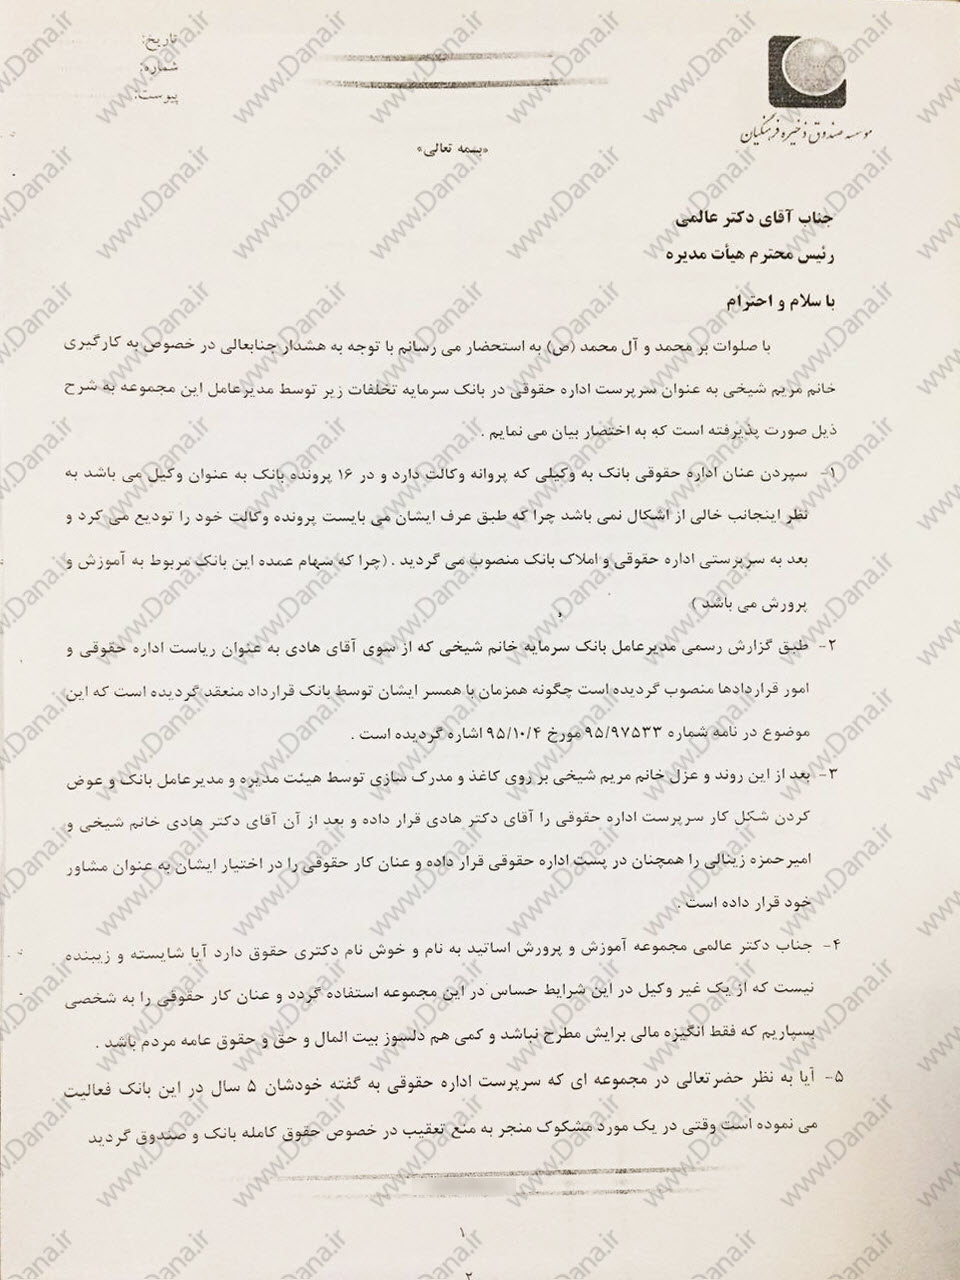 تاریخ:
شماره:
پیوست:
موسسه صندوق ذخیره فرهنگیان
«بسمه تعالی»
جناب آقای دکتر عالمی
رئیس محترم هیأت مدیره
با سلام و احترام
با صلوات بر محمد و آل محمد (ص) به استحضار می رسانم با توجه به هشدار جنابعالی در خصوص به کارگیری
خانم مریم شیخی به عنوان سرپرست اداره حقوقی در بانک سرمایه تخلفات زیر توسط مدیرعامل این مجموعه به شرح
ذیل صورت پذیرفته است که به اختصار بیان می نمایم .
۱- سپردن عنان اداره حقوقی بانک به وکیلی که پروانه وکالت دارد و در ۱۶ پرونده بانک به عنوان وکیل می باشد به
نظر اینجانب خالی از اشکال نمی باشد چرا که طبق عرف ایشان می بایست پرونده وکالت خود را تودیع می کرد و
بعد به سرپرستی اداره حقوقی و املاک بانک منصوب می گردید . (چرا که سهام عمده این بانک مربوط به آموزش و
پرورش می باشد )
۲- طبق گزارش رسمی مدیرعامل بانک سرمایه خانم شیخی که از سوی آقای هادی به عنوان ریاست اداره حقوقی و
امور قراردادها منصوب گردیده است چگونه همزمان با همسر ایشان توسط بانک قرارداد منعقد گردیده است که این
موضوع در نامه شماره ۹۵/۹۷۵۳۳ مورخ ۹۵/۱۰/۴ اشاره گردیده است .
۳- بعد از این روند و عزل خانم مریم شیخی بر روی کاغذ و مدرک سازی توسط هیئت مدیره و مدیرعامل بانک و عوض
کردن شکل کار سرپرست اداره حقوقی را آقای دکتر هادی قرار داده و بعد از آن آقای دکتر هادی خانم شیخی و
امیرحمزه زینالی را همچنان در پست اداره حقوقی قرار داده و عنان کار حقوقی را در اختیار ایشان به عنوان مشاور
خود قرار داده است .
۴- جناب دکتر عالمی مجموعه آموزش و پرورش اساتید به نام و خوش نام دکتری حقوق دارد آیا شایسته و زیبنده
نیست که از یک غیر وکیل در این شرایط حساس در این مجموعه استفاده گردد و عنان کار حقوقی را به شخصی
بسپاریم که فقط انگیزه مالی برایش مطرح نباشد و کمی هم دلسوز بیت المال و حق و حقوق عامه مردم باشد .
۵- آیا به نظر حضرتعالی در مجموعه ای که سرپرست اداره حقوقی به گفته خودشان ۵ سال در این بانک فعالیت
می نموده است وقتی در یک مورد مشکوک منجر به منع تعقیب در خصوص حقوق کامله بانک و صندوق گردید
۱
۲
www.Dana.ir